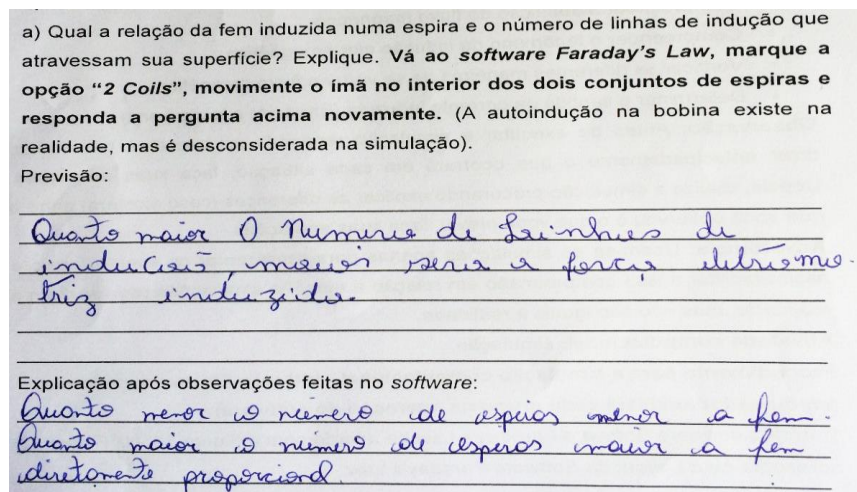 a) Qual a relação da fem induzida numa espira e o número de linhas de indução que
atravessam sua superfície? Explique. Vá ao software Faraday's Law, marque a
opção "2 Coils", movimente o ímã no interior dos dois conjuntos de espiras e
responda a pergunta acima novamente. (A autoindução na bobina existe na
realidade, mas é desconsiderada na simulação).
Previsão:
Quanto maior O Numero de Lainhas de
induçaõ, maior sera a força eletromo-
triz induzida.
Explicação após observações feitas no software:
Quanto menor o número de espiras menor a fem.
Quanto maior o número de esperas maior a fem
diretamente proporcional.